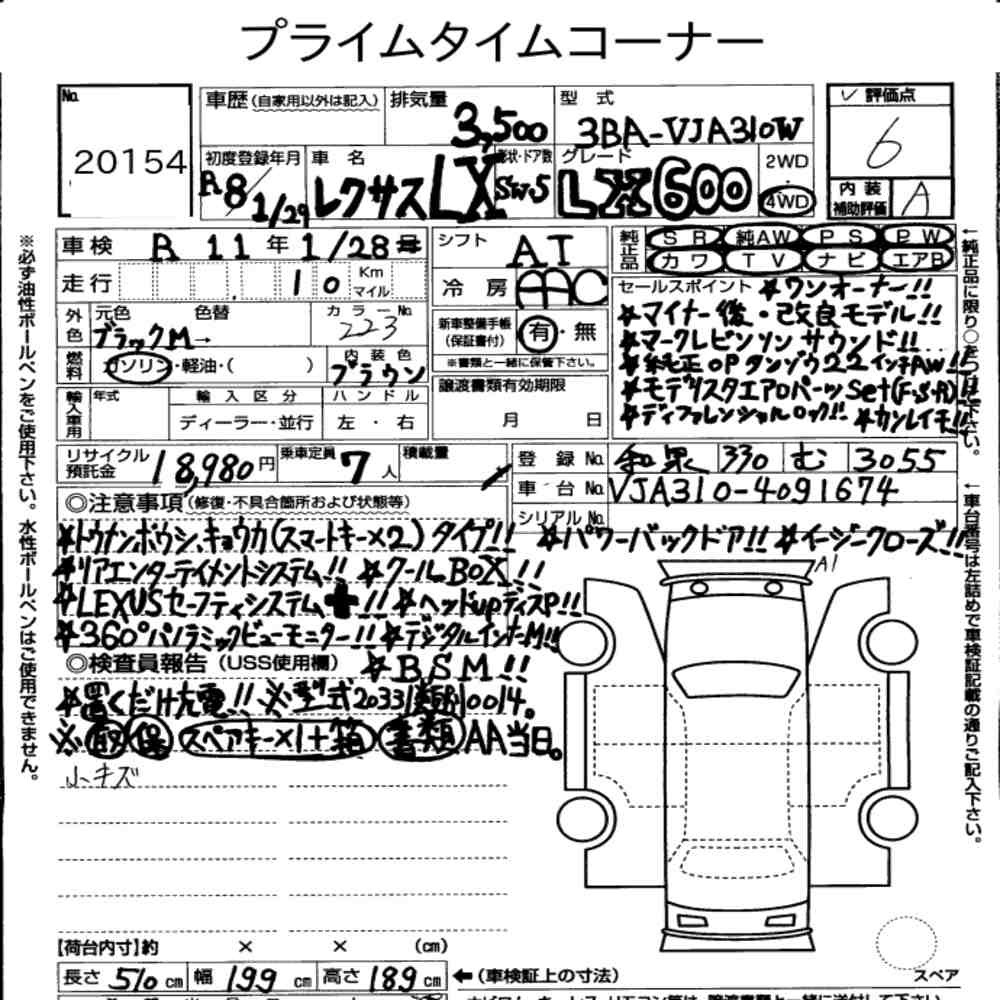 プライムタイムコーナー
No. 20154
車歴（自家用以外は記入） 排気量 3,500 型式 3BA-VJA310W
評価点 6
初度登録年月 R8/1/29 車名 レクサス LX 形状・ドア数 SW.5 グレード LX600 2WD・4WD
内装補助評価 A
車検 R 11年 1/28
走行 10 Km マイル
シフト AT
冷房 AAC
純正品 SR 純AW PS PW
カワ TV ナビ エアB
外色 元色 ブラックM→ 色替 カラーNo. 223
燃料 ガソリン・軽油・( ) 内装色 ブラウン
新車整備手帳（保証書付） 有・無
※書類と一緒に保管下さい。
セールスポイント ☆ワンオーナー!!
☆マイナー後・改良モデル!!
☆マークレビンソンサウンド!!
☆純正OPタンゾウ22インチAW!!
☆モデリスタエアロパーツSet(F・S・R)!!
☆ディファレンシャルロック!! ☆カンレイチ!!
輸入車用 年式 輸入区分 ディーラー・並行 ハンドル 左・右
譲渡書類有効期限 月 日
リサイクル預託金 18,980円 乗車定員 7人 積載量
登録No. 和泉 330 む 3055
車台No. VJA310-4091674
シリアルNo.
◎注意事項（修復・不具合箇所および状態等）
☆トウナンボウシ、キョウカ(スマートキー×2)タイプ!! ☆パワーバックドア!! ☆イージークローズ!!
☆リアエンターテイメントシステム!! ☆クールBOX!!
☆LEXUSセーフティシステム+!! ☆ヘッドupディスP!!
☆360°パノラミックビューモニター!! ☆デジタルインナーM!!
◎検査員報告（USS使用欄） ☆BSM!!
☆置くだけ充電!! ※型式20331類別0014。
※取 保 スペアキー×1+箱 書類AA当日。
小キズ
A1
【荷台内寸】約 × × （cm）
長さ 510cm 幅 199cm 高さ 189cm ←（車検証上の寸法）
スペア
※必ず油性ボールペンをご使用下さい。水性ボールペンはご使用できません。
←純正品に限り○をつけて下さい。
←車台番号は左詰めで車検証記載の通りご記入下さい。